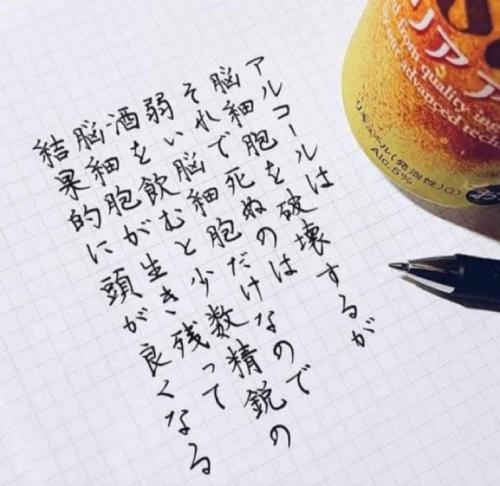 アルコールは
脳細胞を破壊するが
それで死ぬのは
弱い脳細胞だけなので
酒を飲むと少数精鋭の
脳細胞が生き残って
結果的に頭が良くなる
リア
from quality in
our advanced
リキュール(発泡性)①
Alc.5%